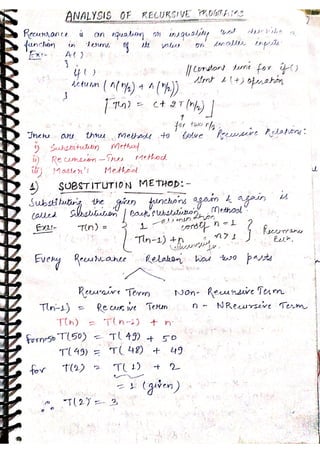 ANALYSIS OF RECURSIVE PROGRAMS
Recurrance is an equation or inequality that describe a
function in terms of its value on smaller inputs
Ex:- A()
{
if()
return (A(n/2) + A(n/2))
}
// Constant time for if()
stmt & (+) operation
T(n) = C + 2T(n/2)
for two n/2
There are three methods to solve Recursive Relations:
i) Substitution Method
ii) Recursion-Tree Method
iii) Master's Method
1) SUBSTITUTION METHOD:-
Substituting the given functions again & again is
called Substitution / Back Substitution Method
Ex1:- T(n) = { 1 n = 1
T(n-1) + n n > 1
Every Recurrance Relation has two parts
Recursive Term Non-Recursive Term
T(n-1) = Recursive Term n - NRecursive Term
T(n) = T(n-1) + n
for n=50 T(50) = T(49) + 50
T(49) = T(48) + 49
for T(2) = T(1) + 2
= 1 (given)
∴ T(2) = 3